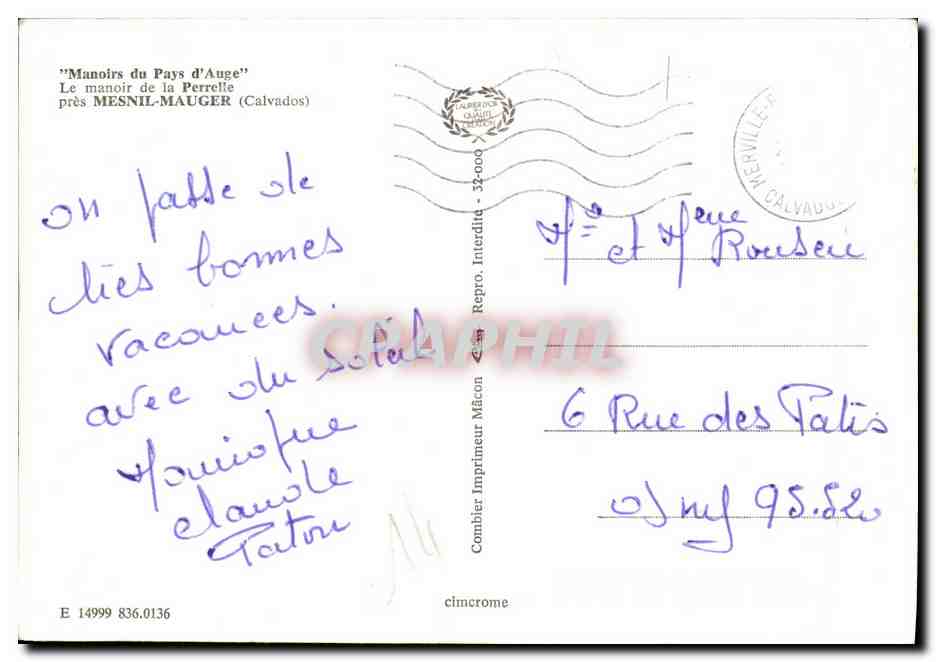 "Manoirs du Pays d'Auge"
Le manoir de la Perrelle
près MESNIL-MAUGER (Calvados)
on passe de
très bonnes
vacances.
avec du soleil
Monique
claude
Paton
E 14999 836.0136
LAURIER D'OR
QUALITÉ
CRÉATION
Combier Imprimeur Mâcon
Repro. Interdite - 32-000
CRAPHIL
cimcrome
14
MERVILLE-F
CALVADOS
et Mme
6 Rue des Patis
Osny 95.520